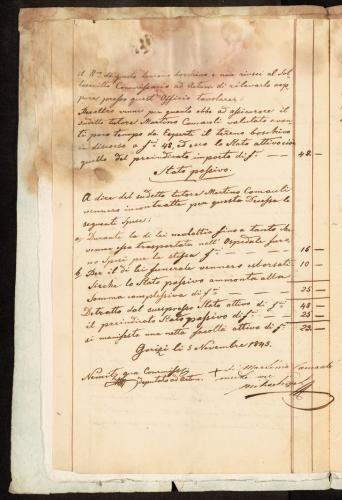 il N.º di questo terreno boschivo e non riuscì al Sot
toscritto Commissario ad altrui di rilevarlo nep
pure presso quest'Officio tavolare.
Peraltro venne in quanto ebbe ad assicurare il
suddetto tutore Martino Comauli valutato avan
ti poco tempo da Esperti il terreno boschivo
in discorso a f.ni 48, ed ecco lo Stato attivo con
quello del preindicato importo di f.ni — 48 —
Stato passivo.
A dire del suddetto tutore Martino Comauli
vennero incontrate per questo Decesso le
seguenti Spese:
a) Durante la di lei malattia fino a tanto che
venne essa trasportata nell'Ospedale furo
no Spesi per la stessa f.ni — 15 —
b) Per il di lei funerale vennero esborsati — 10 —
Sicché lo Stato passivo ammonta alla
Somma complessiva di f.ni — 25 —
Detratto dal suespresso Stato attivo di f.ni — 48 —
il preindicato Stato passivo di f.ni — 25 —
si manifesta una netta facoltà attiva di f.ni — 23 —
Gorizi li 5 Novembre 1843.
qua Commiss.
deputato ad actum.
+ di Martino Comauli